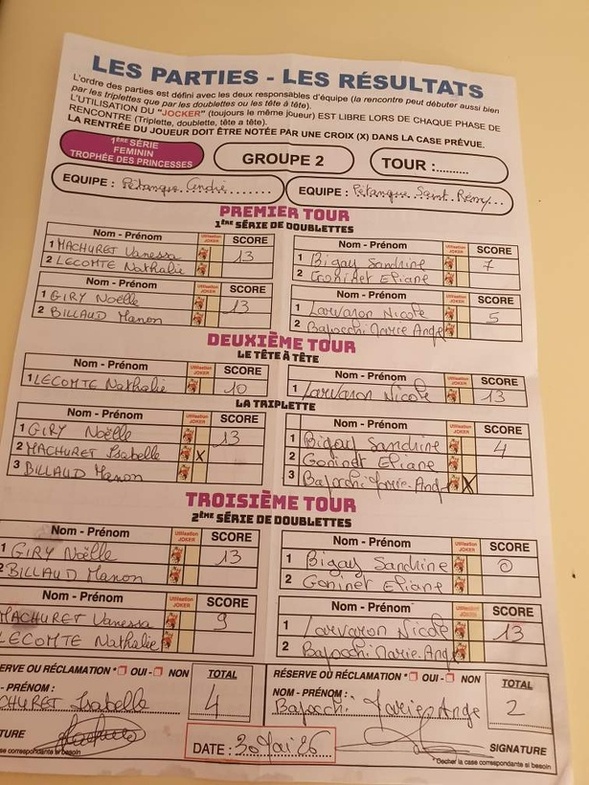 LES PARTIES - LES RÉSULTATS
L'ordre des parties est défini avec les deux responsables d'équipe (la rencontre peut débuter aussi bien
par les triplettes que par les doublettes ou les tête à tête).
L'UTILISATION DU "JOCKER" (toujours le même joueur) EST LIBRE LORS DE CHAQUE PHASE DE
RENCONTRE (Triplette, doublette, tête a tête).
LA RENTRÉE DU JOUEUR DOIT ÊTRE NOTÉE PAR UNE CROIX (X) DANS LA CASE PRÉVUE.
1ÈRE SÉRIE
FEMININ
TROPHÉE DES PRINCESSES
GROUPE 2
TOUR :..........
EQUIPE : Pétanque André
EQUIPE : Pétanque Saint Rémy
PREMIER TOUR
1ÈRE SÉRIE DE DOUBLETTES
Nom - Prénom Utilisation JOKER SCORE
1 MACHURET Vanessa 13
2 LECOMTE Nathalie
Nom - Prénom Utilisation JOKER SCORE
1 Bigay Sandrine 7
2 Goninet Eliane
Nom - Prénom Utilisation JOKER SCORE
1 GIRY Noëlle 13
2 BILLAUD Manon
Nom - Prénom Utilisation JOKER SCORE
1 Larvaron Nicole 5
2 Bajocchi Marie Ange
DEUXIÈME TOUR
LE TÊTE À TÊTE
Nom - Prénom Utilisation JOKER SCORE
1 LECOMTE Nathalie 10
Nom - Prénom Utilisation JOKER SCORE
1 Larvaron Nicole 13
LA TRIPLETTE
Nom - Prénom Utilisation JOKER SCORE
1 GIRY Noëlle 13
2 MACHURET Isabelle X
3 BILLAUD Manon
Nom - Prénom Utilisation JOKER SCORE
1 Bigay Sandrine 4
2 Goninet Eliane
3 Bajocchi Marie-Ange X
TROISIÈME TOUR
2ÈME SÉRIE DE DOUBLETTES
Nom - Prénom Utilisation JOKER SCORE
1 GIRY Noëlle 13
2 BILLAUD Manon
Nom - Prénom Utilisation JOKER SCORE
1 Bigay Sandrine 0
2 Goninet Eliane
Nom - Prénom Utilisation JOKER SCORE
MACHURET Vanessa 9
LECOMTE Nathalie
Nom - Prénom Utilisation JOKER SCORE
1 Larvaron Nicole 13
2 Bajocchi Marie-Ange
ERVE OU RÉCLAMATION * OUI - NON
TOTAL
- PRÉNOM :
CHURET Isabelle 4
TURE
se correspondante si besoin
RÉSERVE OU RÉCLAMATION * OUI - NON
TOTAL
NOM - PRÉNOM :
Bajocchi Marie Ange 2
DATE : 30 Mai 26
SIGNATURE
*Cocher la case correspondante si besoin